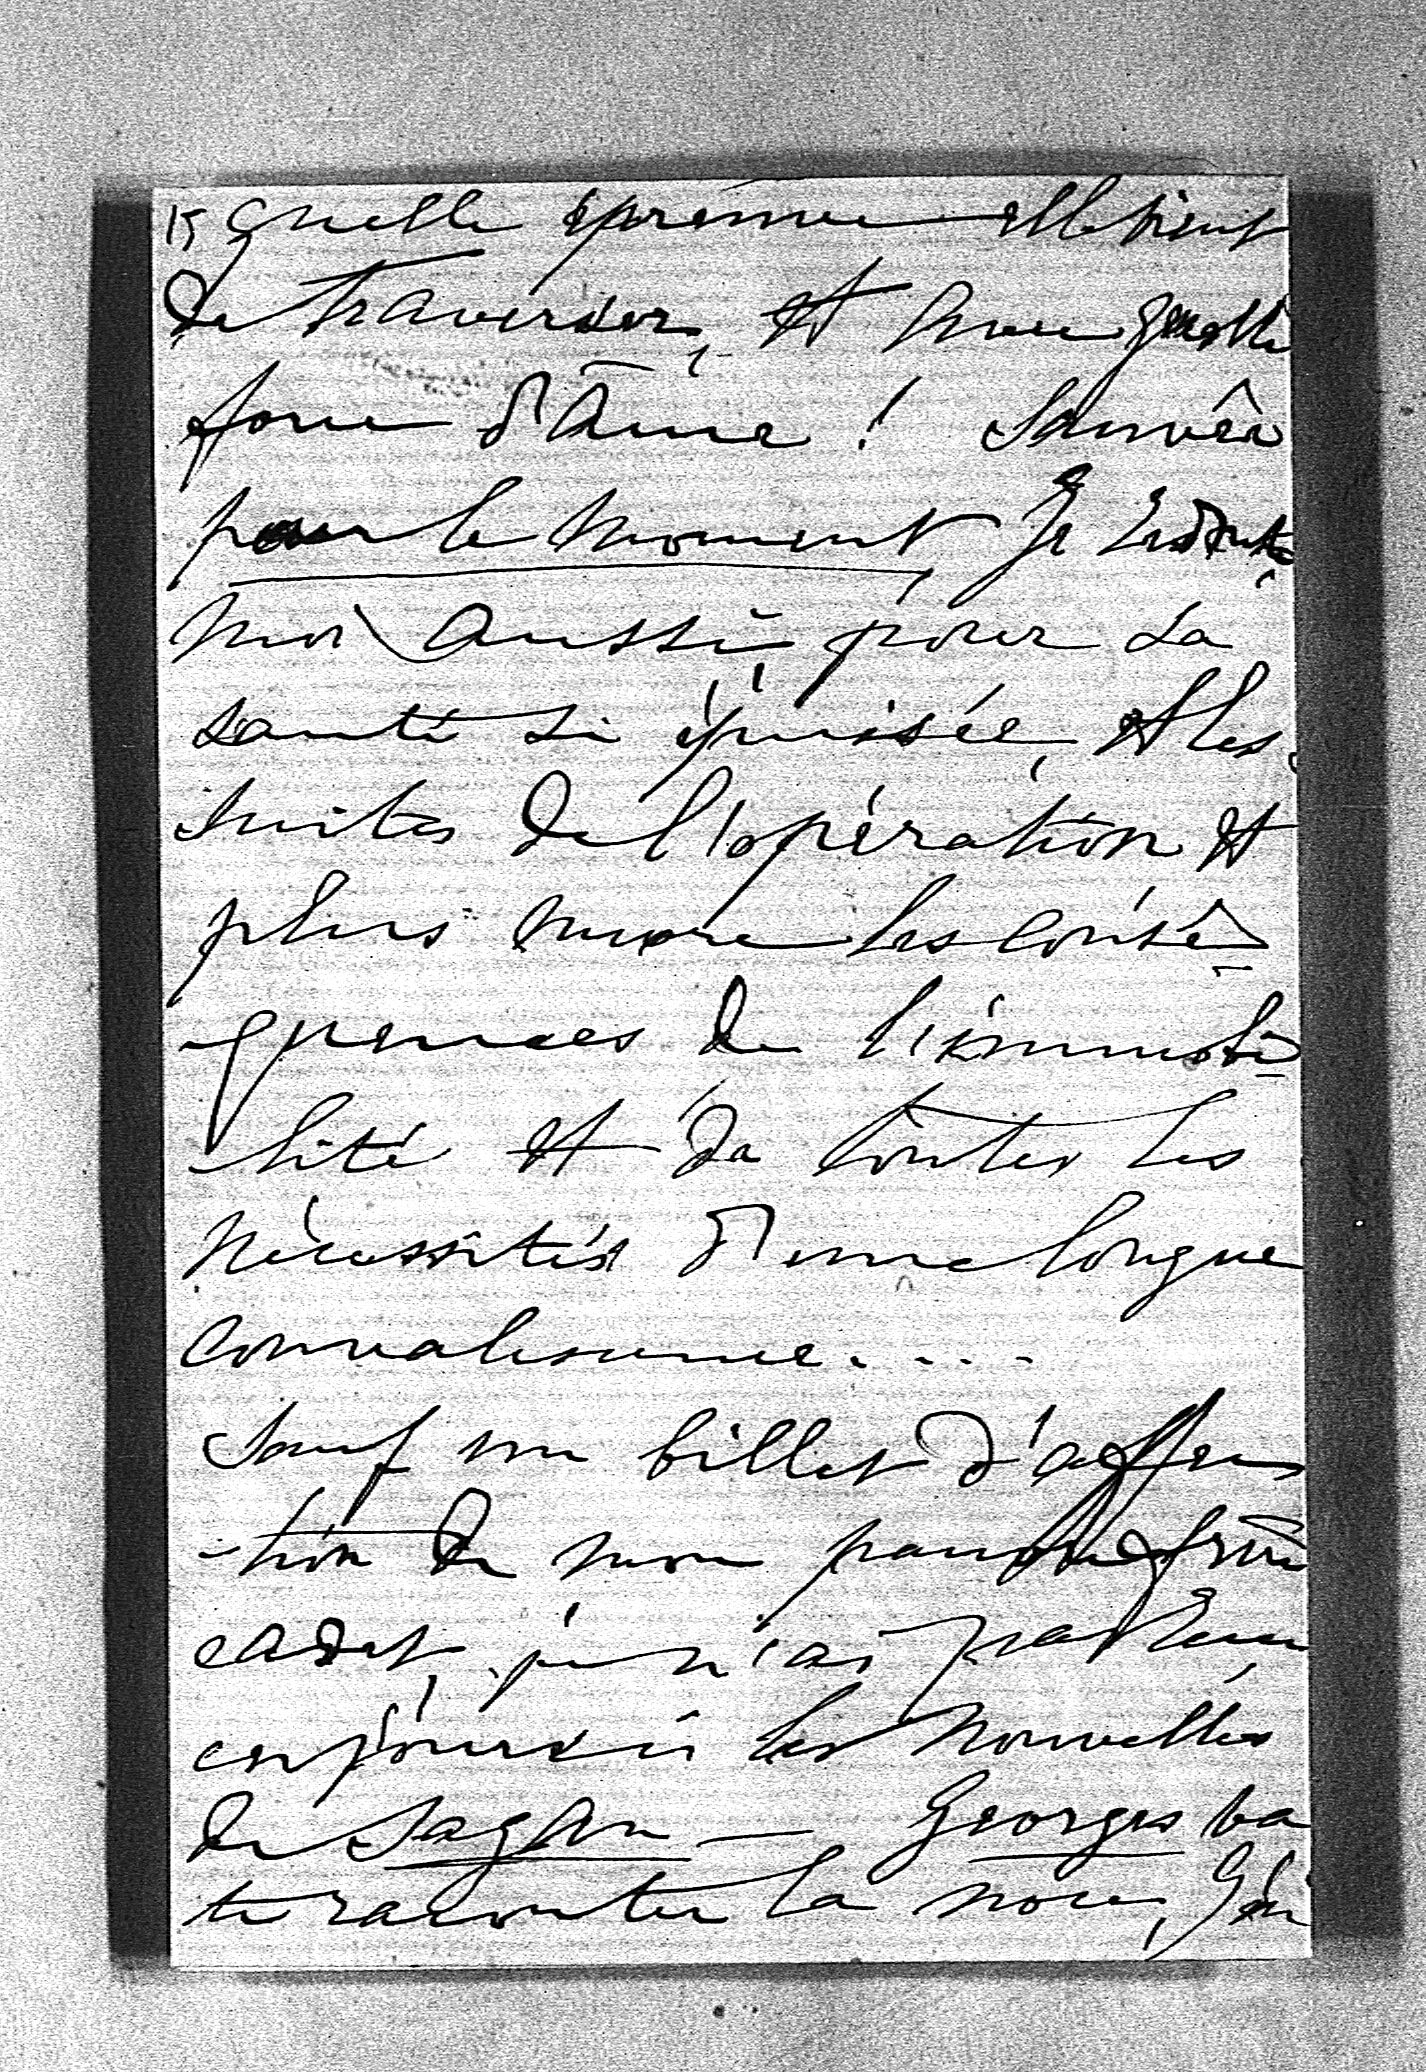 15 quelle épreuve elle vient
de traverser, et avec quelle
force d'âme ! Sauvée
pour le moment, je redoute,
moi aussi, pour sa
santé si épuisée, et les
suites de l'opération et
plus encore les consé-
-quences de l'immobi-
-lité et de toutes les
nécessités d'une longue
convalescence....
Sauf un billet d'affec-
-tion de mon pauvre frère
cadet, je n'ai pas reçu
ces jours-ci les nouvelles
de Sagan — Georges va
te raconter la noce,